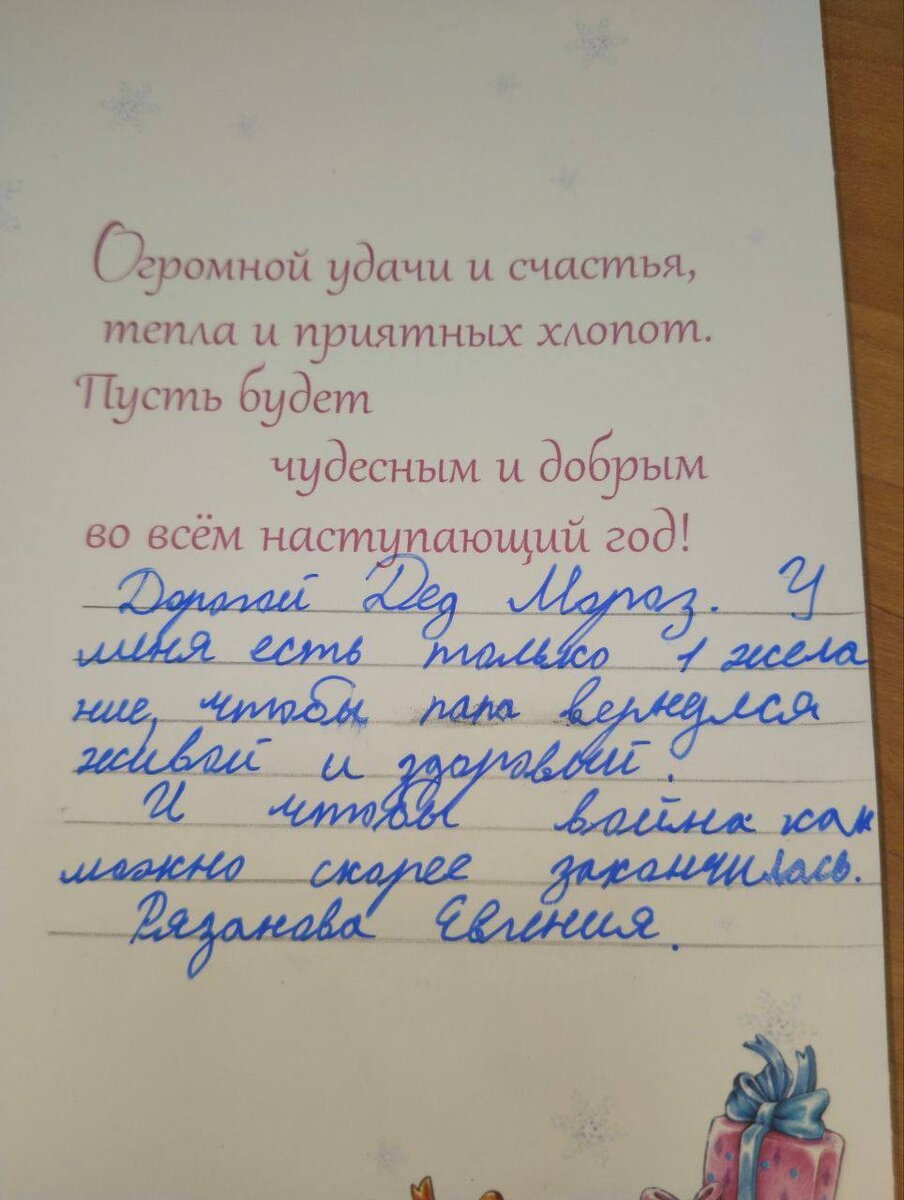 Огромной удачи и счастья,
тепла и приятных хлопот.
Пусть будет
чудесным и добрым
во всём наступающий год!
Дорогой Дед Мороз. У
меня есть только 1 жела
ние, чтобы папа вернулся
живой и здоровый.
И чтобы война как
можно скорее закончилась.
Рязанова Евгения.